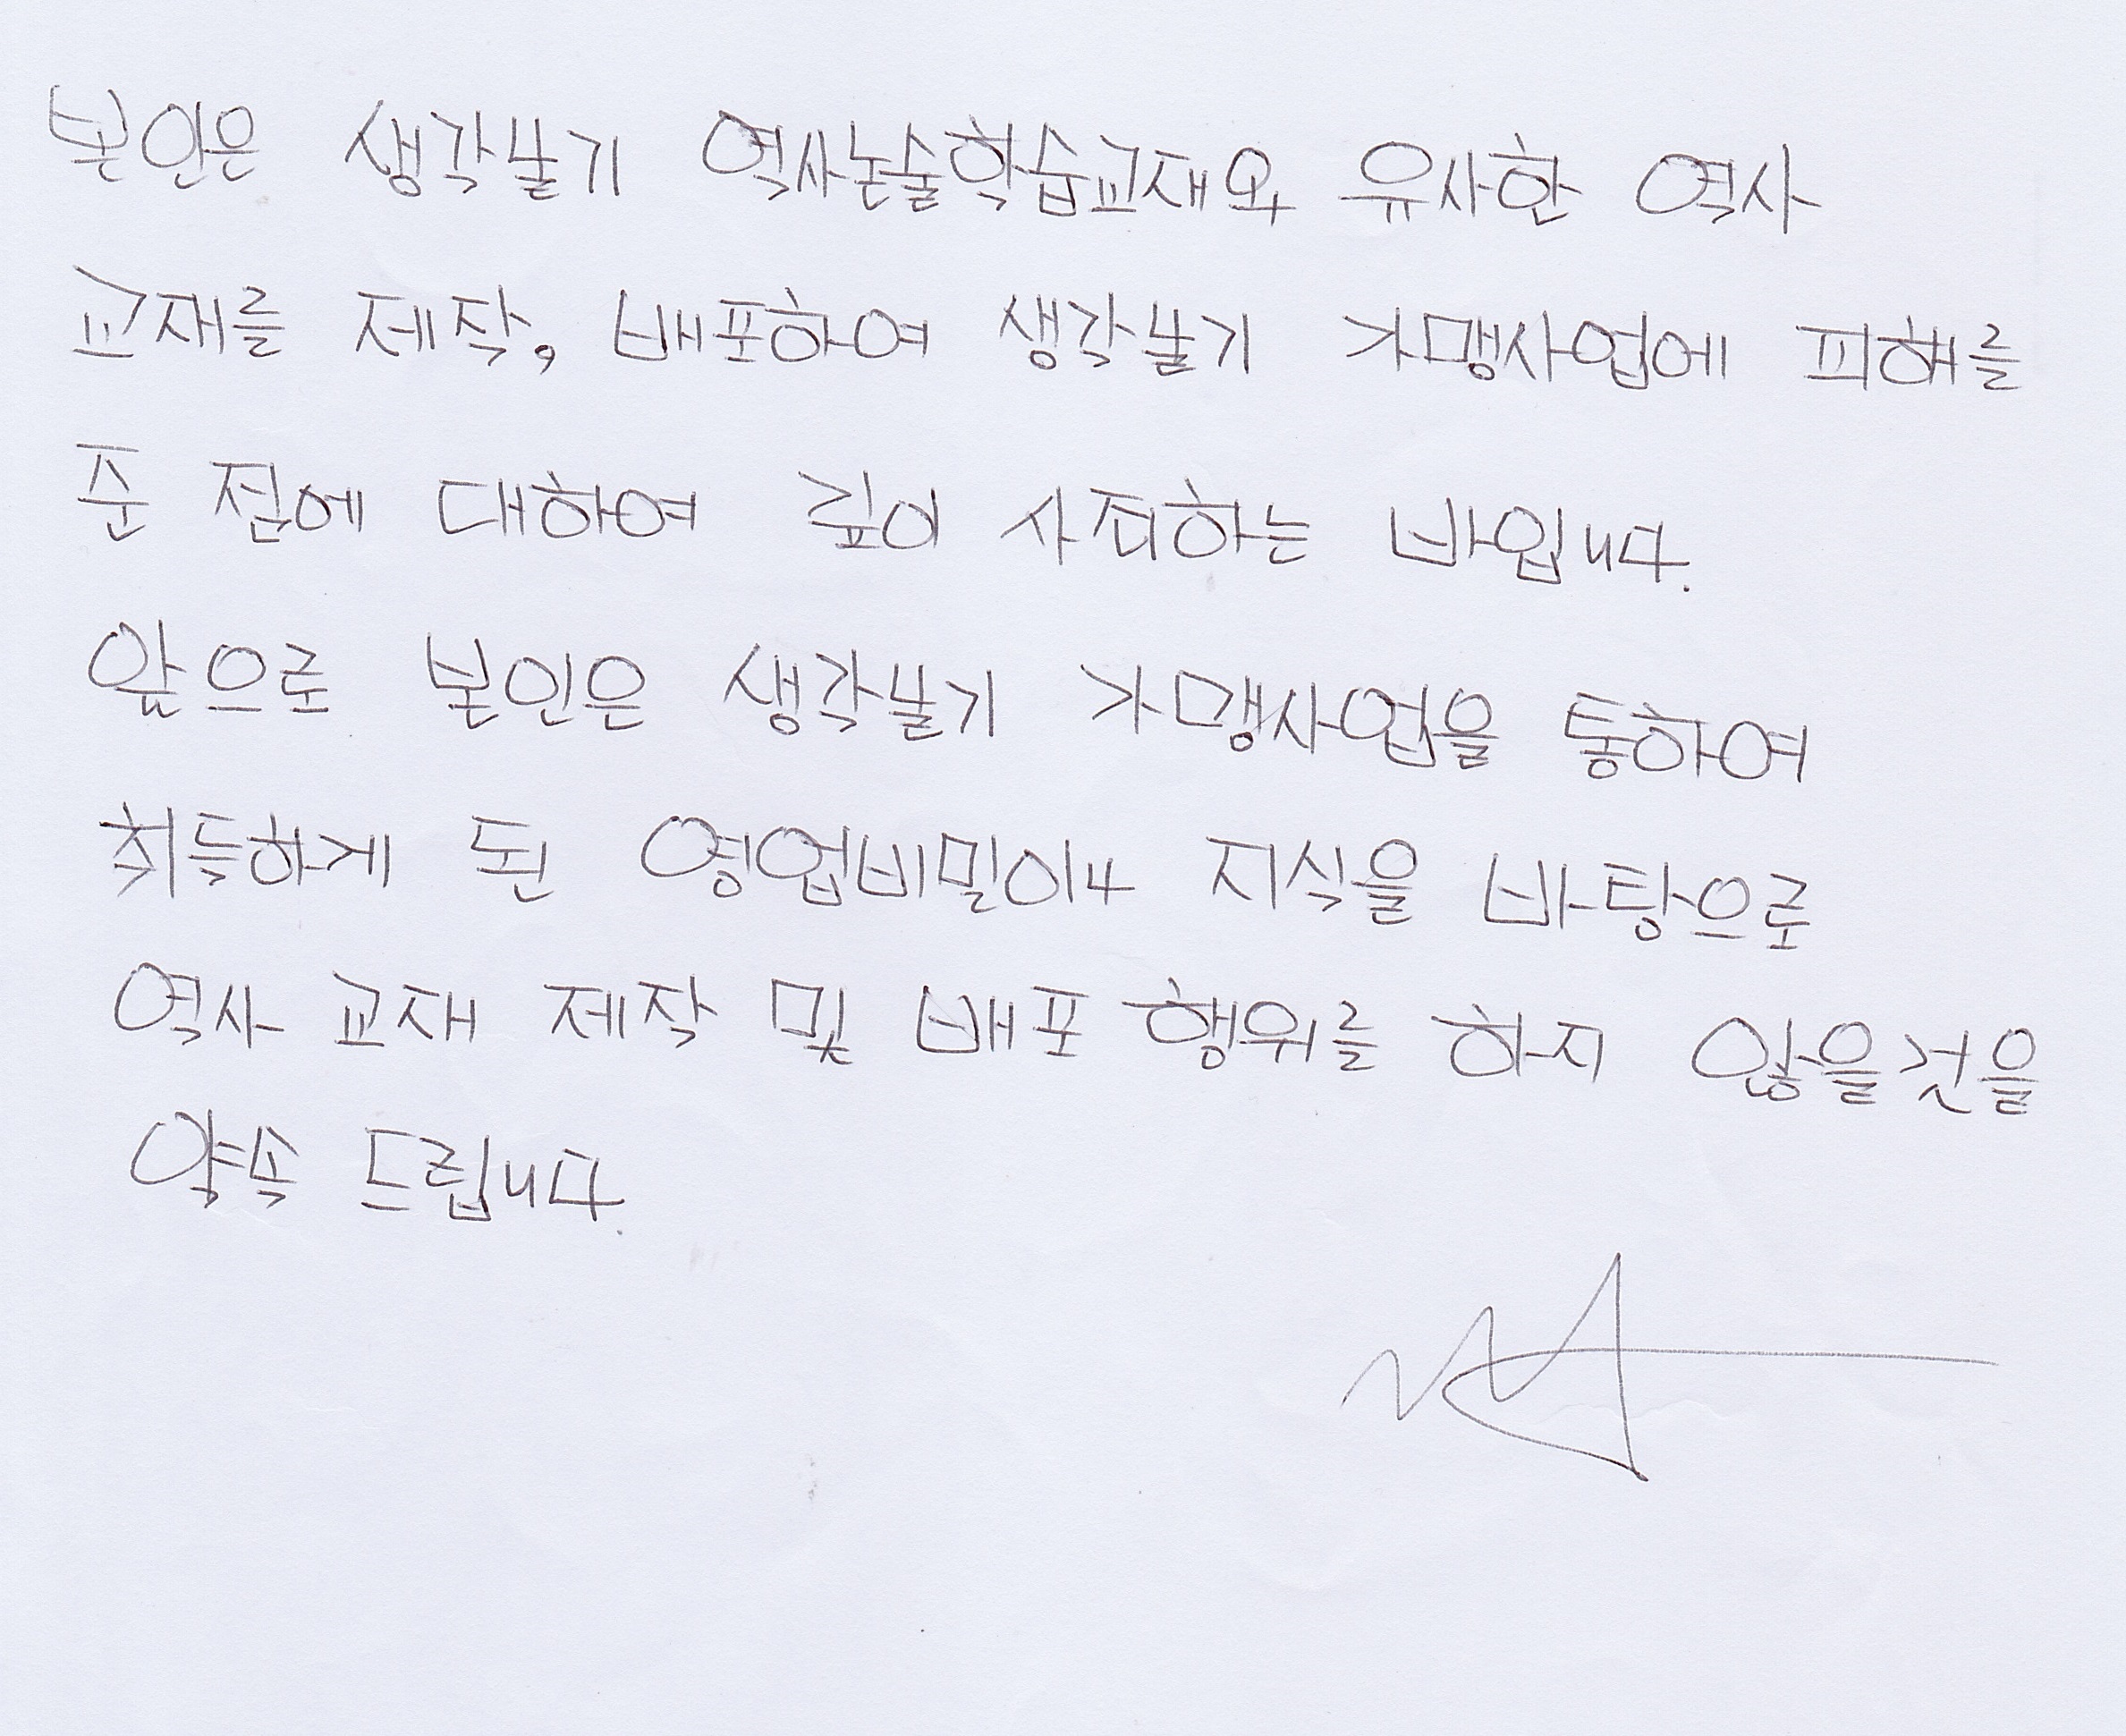 본인은 생각날기 역사논술학습교재와 유사한 역사
교재를 제작, 배포하여 생각날기 가맹사업에 피해를
준 점에 대하여 깊이 사죄하는 바입니다.
앞으로 본인은 생각날기 가맹사업을 통하여
취득하게 된 영업비밀이나 지식을 바탕으로
역사 교재 제작 및 배포 행위를 하지 않을것을
약속 드립니다.